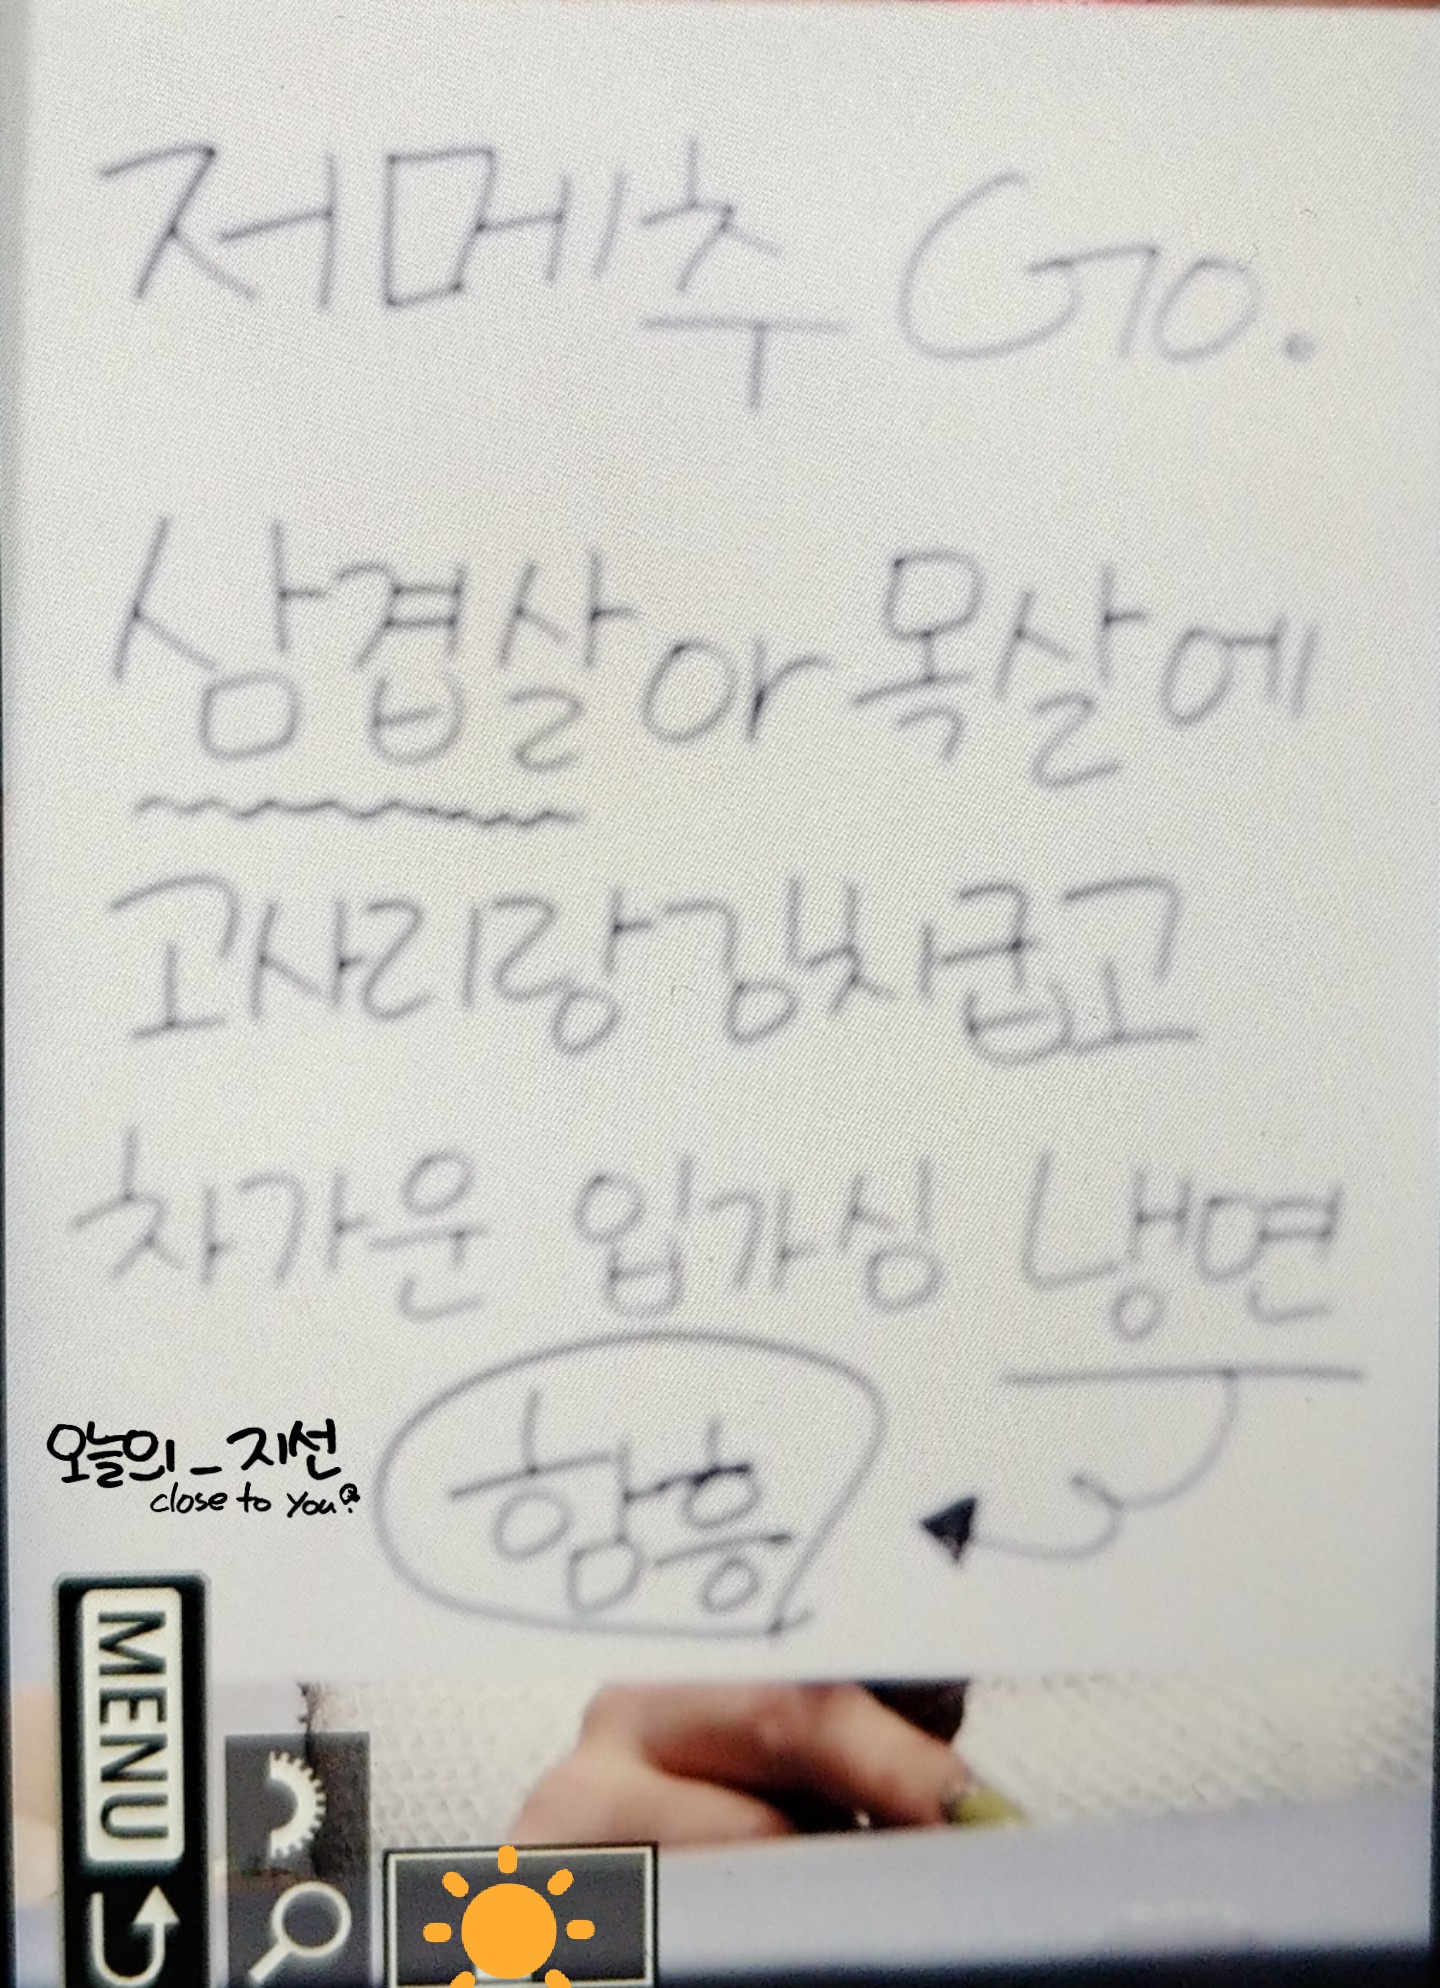 저메추 Go.
삼겹살아 목살에
고사리랑 김치굽고
차가운 입가심 냉면
항흥
오늘의_지선
close to you?
MENU